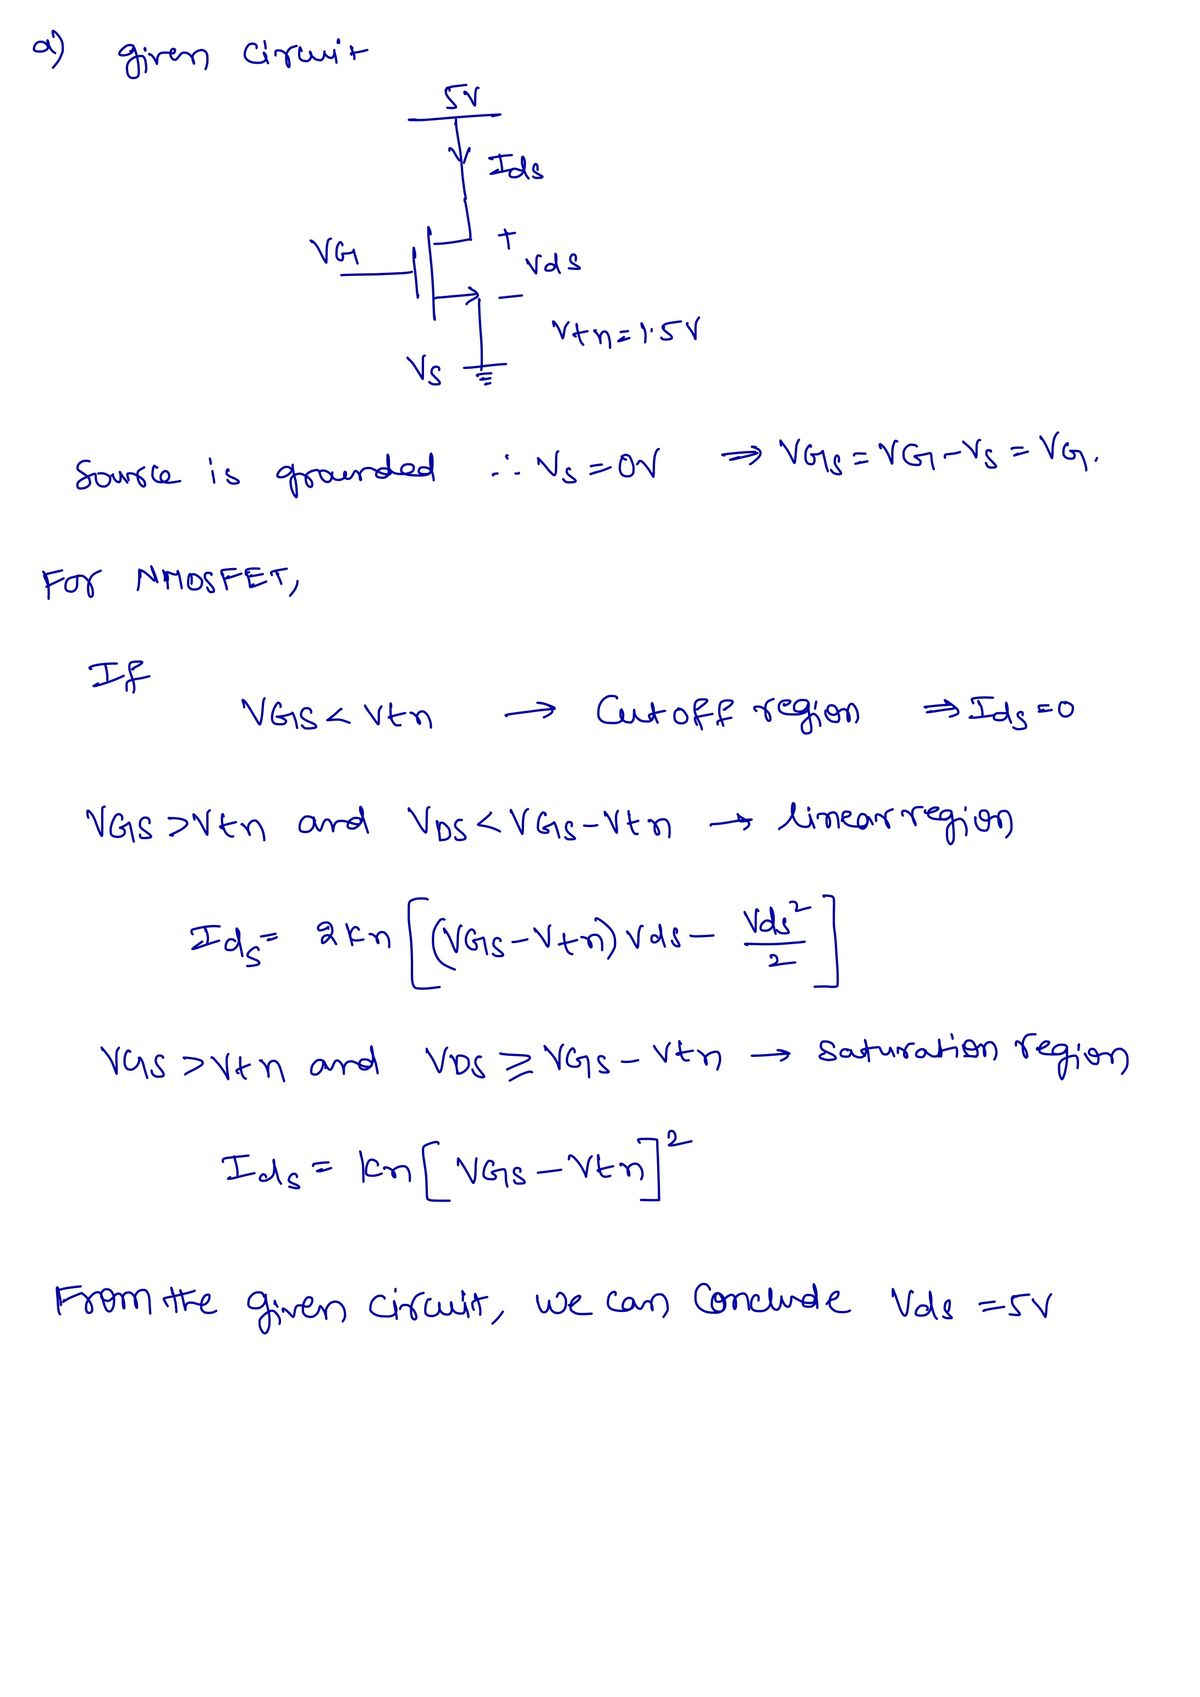 a) given circuit
5V
Ids
VG
+
Vds
−
Vtn=1.5V
Vs
Source is grounded ∴ Vs=0V ⇒ VGS=VG−Vs=VG.
For NMOSFET,
If
VGS<Vtn → Cutoff region ⇒ Ids=0
VGS>Vtn and VDS<VGS−Vtn → linear region
Ids= 2kn[(VGS−Vtn)Vds− Vds²/2]
VGS>Vtn and VDS≥VGS−Vtn → Saturation region
Ids= kn[VGS−Vtn]²
From the given circuit, we can Conclude Vds=5V